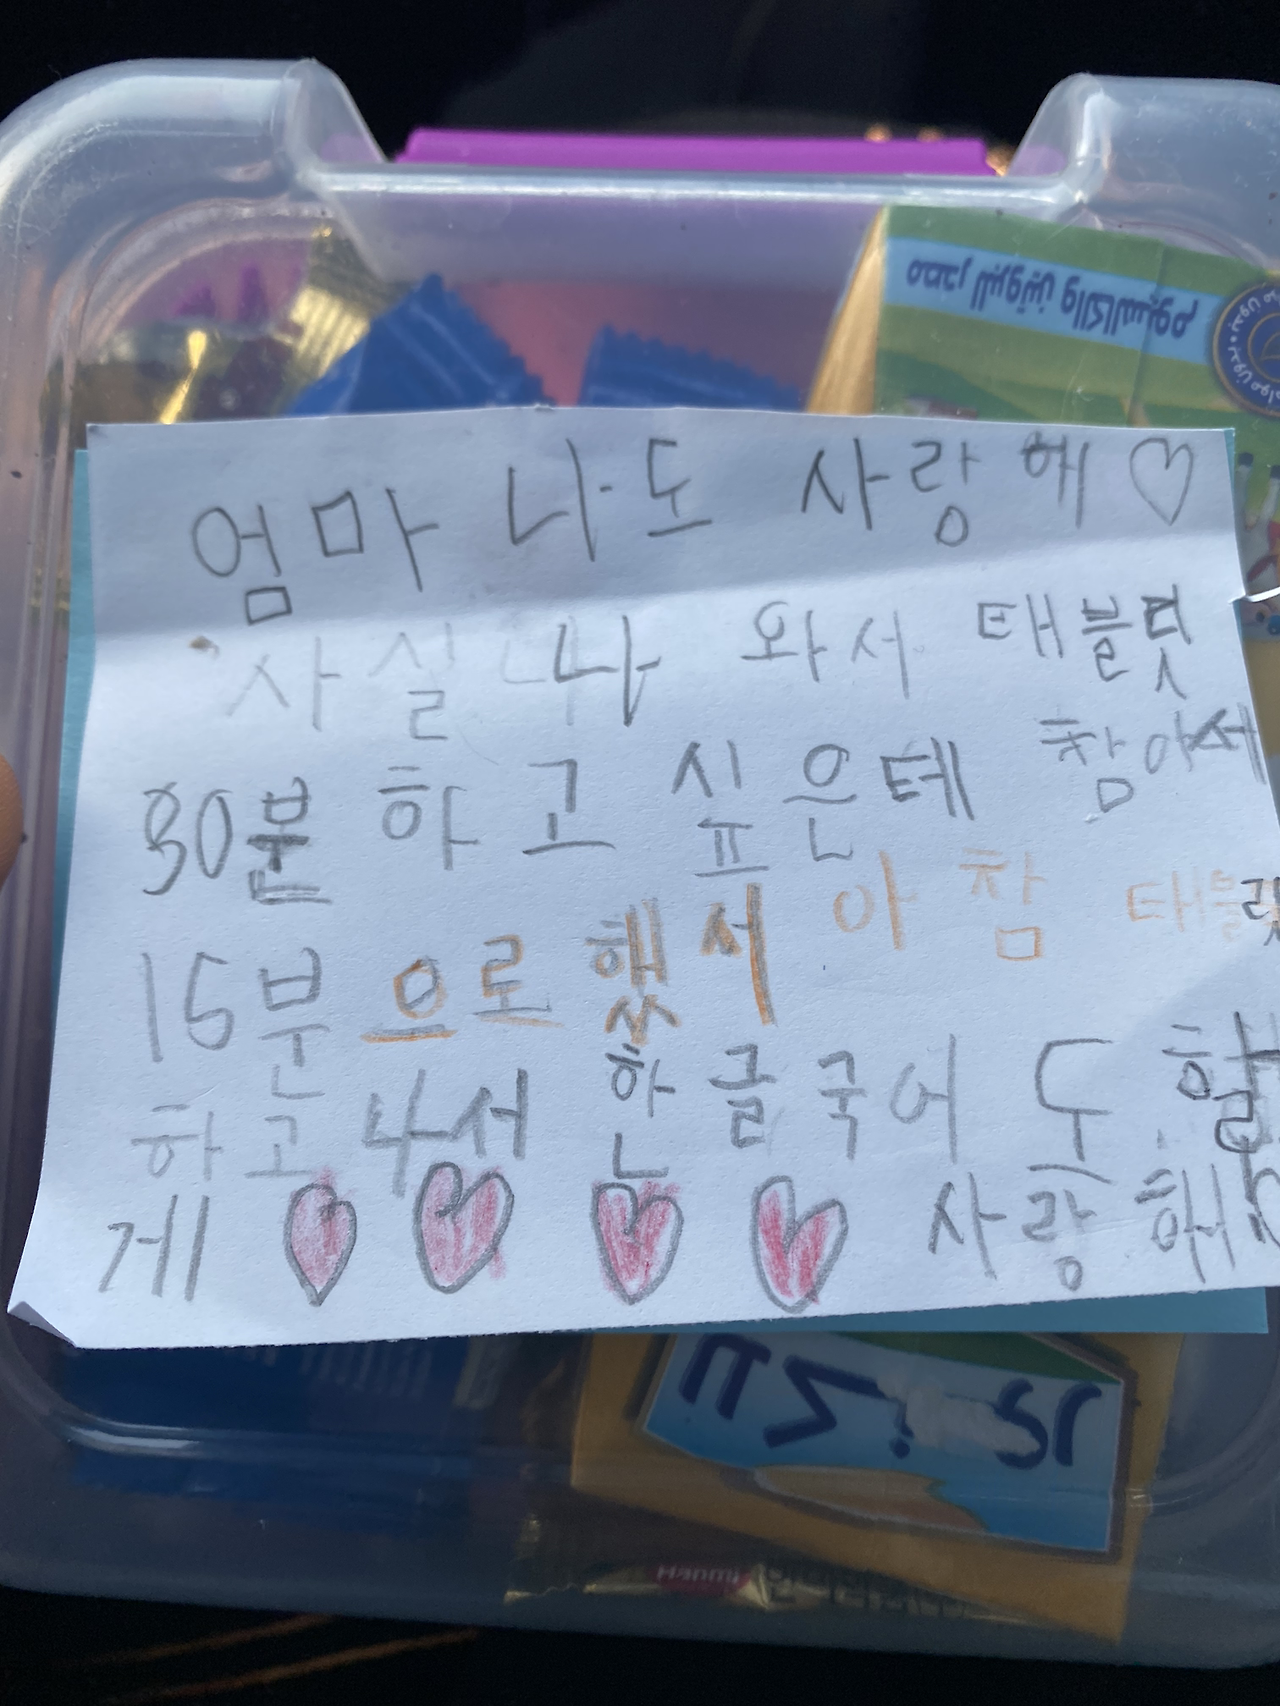 엄마 나도 사랑헤♡
사실 나 와서 태블릿
30분 하고 싶은테 참아서
15분으로 했서 아 참 태블릿
하고 나서 한글국어 도 할
게 ♡ ♡ ♡ ♡ 사랑해
Hanmi